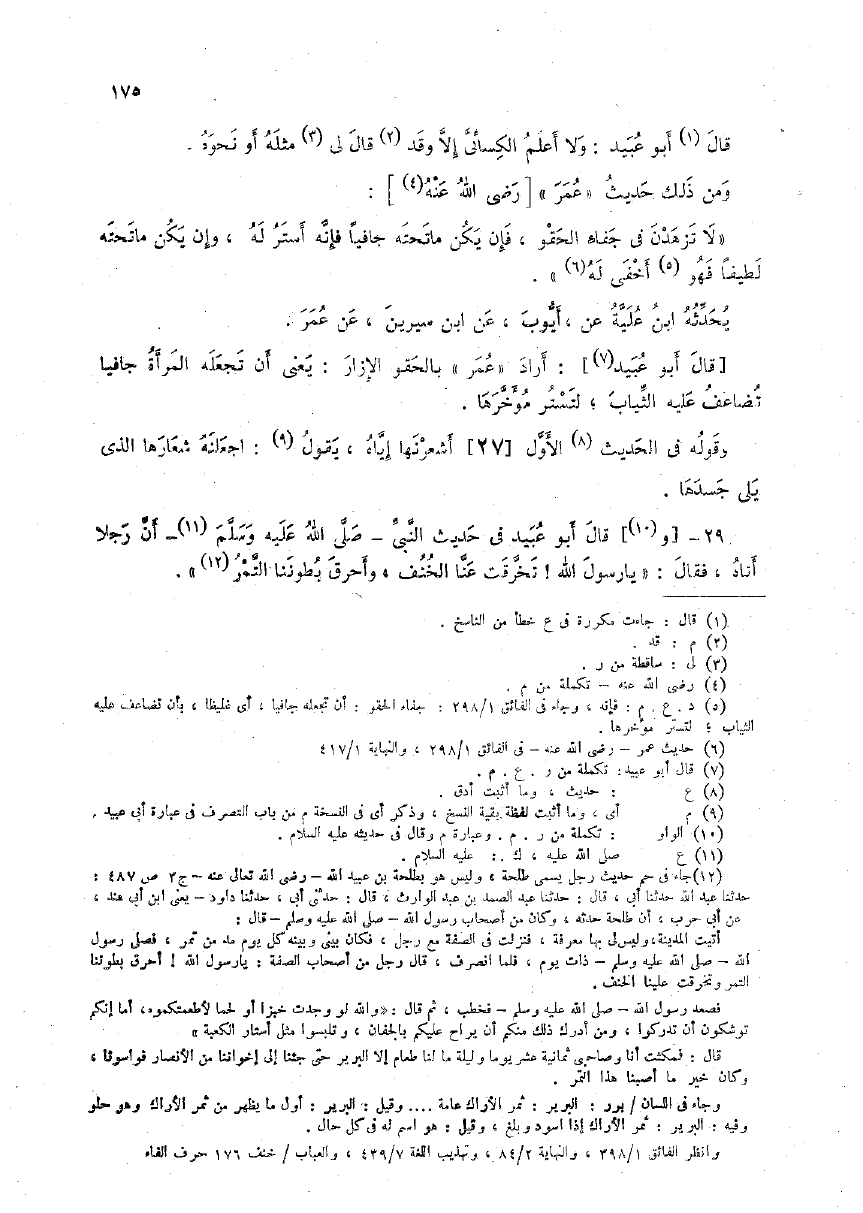 ١٧٥
قالَ (١) أبو عُبَيد : وَلا أَعلَمُ الكِسائىَّ إِلَّا وقَد (٢) قالَ لى (٣) مثلَهُ أو نَحوَهُ .
وَمن ذَلك حَديثُ «عُمَرَ» [رَضى اللهُ عَنْهُ(٤)] :
«لَا تَزهَدْنَ فى جَفاء الحَقْو ، فَإِن يَكُن ماتَحتَه جافياً فإِنَّه أَستَرُ لَهُ ، وإن يَكُن ماتَحتَه
لَطيفاً فَهُو (٥) أَخْفَى لَهُ(٦)» .
يُحَدِّثُهُ ابنُ عُلَيَّةُ عن ، أَيُّوبَ ، عَن ابن سيرينَ ، عَن عُمَرَ .
[قالَ أَبو عُبَيد(٧)] : أَرادَ «عُمَر» بالحَقو الإِزارَ : يَعنى أَن تَجعَلَه المَرأَةُ جافيا
تُضاعَفُ عَليه الثِّيابَ ؛ لتَسْتُر مُؤَخَّرَهَا .
وقَولُه فى الحَديث (٨) الأَوَّل [٢٧] أَشعرْنَها إِيَّاهُ ، يَقولُ (٩) : اجعَلنَهُ شعَارَها الذى
يَلى جَسدَهَا .
٢٩ – [و(١٠)] قالَ أَبو عُبَيد فى حَديث النَّبىِّ – صَلَّى اللهُ عَلَيه وَسَلَّمَ (١١)– أَنَّ رَجلا
أَتاهُ ، فقالَ : «يارسولَ الله ! تَخَرَّقَت عَنَّا الخُنُف ، وأَحرقَ بُطونَنا التَّمْرُ (١٢)» .
(١) قال : جاءت مكررة فى ع خطأ من الناسخ .
(٢) م : قد .
(٣) لى : ساقطة من ر .
(٤) رضى الله عنه – تكملة من م .
(٥) د . ع . م : فإنه ، وجاء فى الفائق ٢٩٨/١ : جفاء الحقو : أن تجعله جافيا ، أى غليظا ، بأن تضاعف عليه
الثياب ؛ لتستر مؤخرها .
(٦) حديث عمر – رضى الله عنه – فى الفائق ٢٩٨/١ ، والنهاية ٤١٧/١
(٧) قال أبو عبيد: تكملة من ر . ع . م .
(٨) ع : حديث ، وما أثبت أدق .
(٩) م أى ، وما أثبت لفظة بقية النسخ ، وذكر أى فى النسخة م من باب التصرف فى عبارة أبى عبيد .
(١٠) الواو : تكملة من ر . م . وعبارة م وقال فى حديثه عليه السلام .
(١١) ع صلى الله عليه ، ك .: عليه السلام .
(١٢)جاء فى حم حديث رجل يسمى طلحة ، وليس هو بطلحة بن عبيد الله – رضى الله تعالى عنه – ج٣ ص ٤٨٧ :
حدثنا عبد الله حدثنا أبى ، قال : حدثنا عبد الصمد بن عبد الوارث ، قال : حدثنى أبى ، حدثنا داود – يعنى ابن أبى هند ،
عن أبى حرب ، أن طلحة حدثه ، وكان من أصحاب رسول الله – صلى الله عليه وسلم – قال :
أتيت المدينة، وليس لى بها معرفة ، فنزلت فى الصفة مع رجل ، فكان بينى وبينه كل يوم مد من تمر ، فصلى رسول
الله – صلى الله عليه وسلم – ذات يوم ، فلما انصرف ، قال رجل من أصحاب الصفة : يارسول الله ! أحرق بطوننا
التمر وتخرقت علينا الخنف .
فصعد رسول الله – صلى الله عليه وسلم – فخطب ، ثم قال : «والله لو وجدت خبزا أو لحما لأطعمتكموه، أما إنكم
توشكون أن تدركوا ، ومن أدرك ذلك منكم أن يراح عليكم بالجفان ، وتلبسوا مثل أستار الكعبة»
قال : فمكثت أنا وصاحبى ثمانية عشر يوما وليلة ما لنا طعام إلا البرير حتى جئنا إلى إخواننا من الأنصار فواسونا ،
وكان خير ما أصبنا هذا التمر .
وجاء فى اللسان / برر : البرير : ثمر الأراك عامة .... وقيل : البرير : أول ما يظهر من ثمر الأراك وهو حلو
وفيه : البرير : ثمر الأراك إذا اسود وبلغ ، وقيل : هو اسم له فى كل حال .
وانظر الفائق ٣٩٨/١ ، والنهاية ٨٤/٢ ، وتهذيب اللغة ٤٣٩/٧ ، والعباب / خنف ١٧٦ حرف الفاء